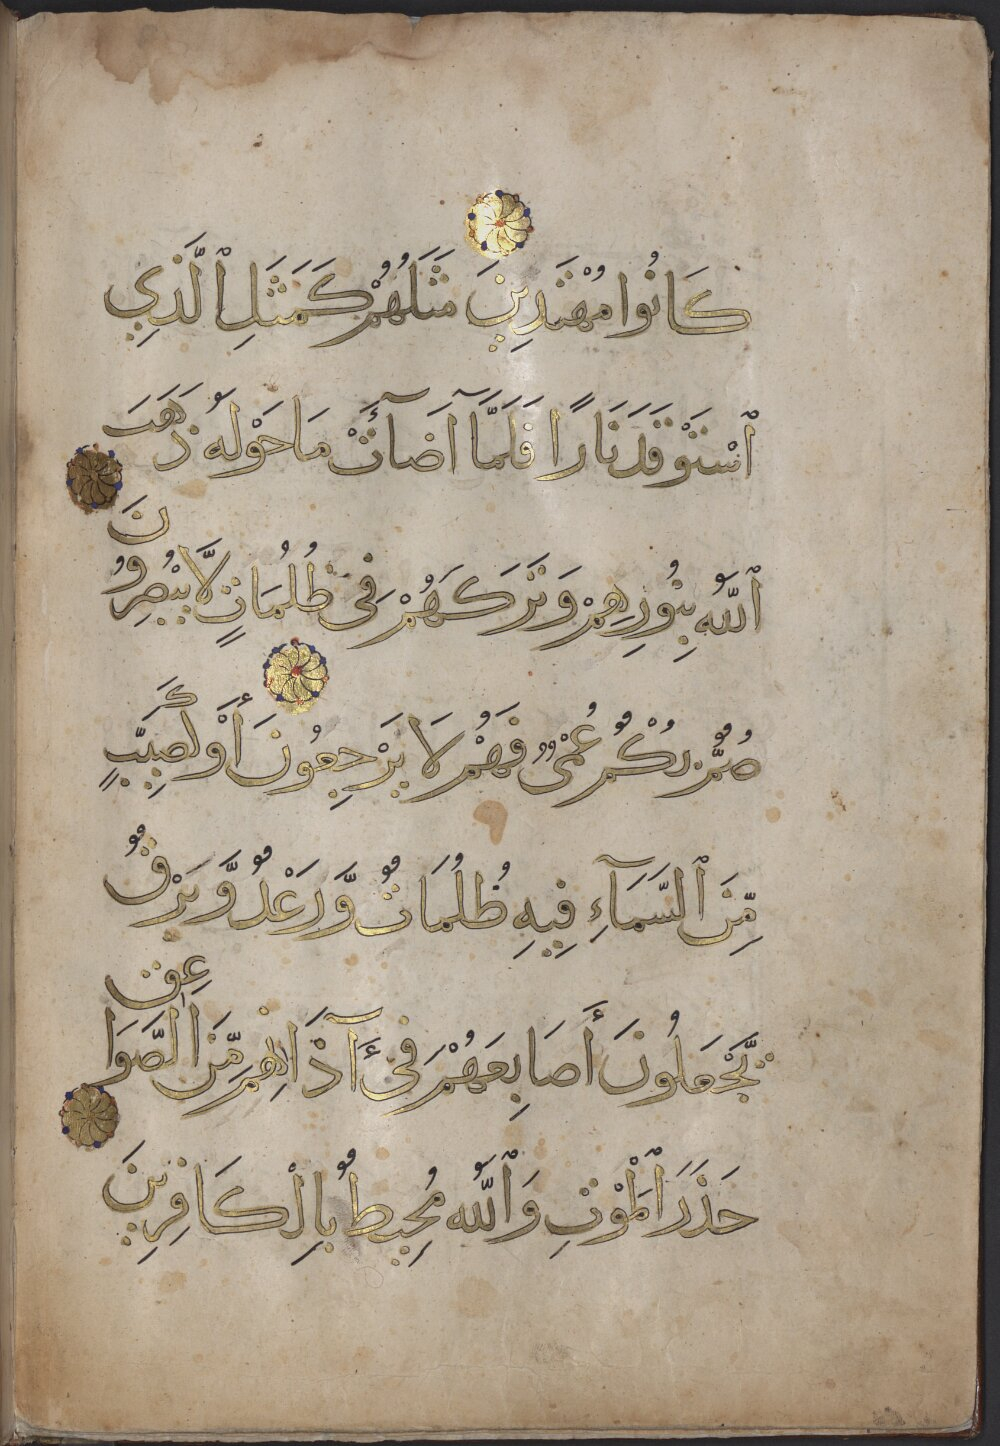 كَانُوا مُهْتَدِينَ مَثَلُهُمْ كَمَثَلِ ٱلَّذِي
ٱسْتَوْقَدَ نَارًا فَلَمَّآ أَضَآءَتْ مَا حَوْلَهُ ذَهَبَ
ٱللَّهُ بِنُورِهِمْ وَتَرَكَهُمْ فِى ظُلُمَاتٍ لَّا يُبْصِرُونَ
صُمٌّ بُكْمٌ عُمْىٌ فَهُمْ لَا يَرْجِعُونَ أَوْ كَصَيِّبٍ
مِّنَ ٱلسَّمَآءِ فِيهِ ظُلُمَاتٌ وَّرَعْدٌ وَّبَرْقٌ
يَّجْعَلُونَ أَصَابِعَهُمْ فِى ءَآذَانِهِمْ مِّنَ الصَّوَاعِقِ
حَذَرَ ٱلْمَوْتِ وَٱللَّهُ مُحِيطٌ بِالْكَافِرِينَ